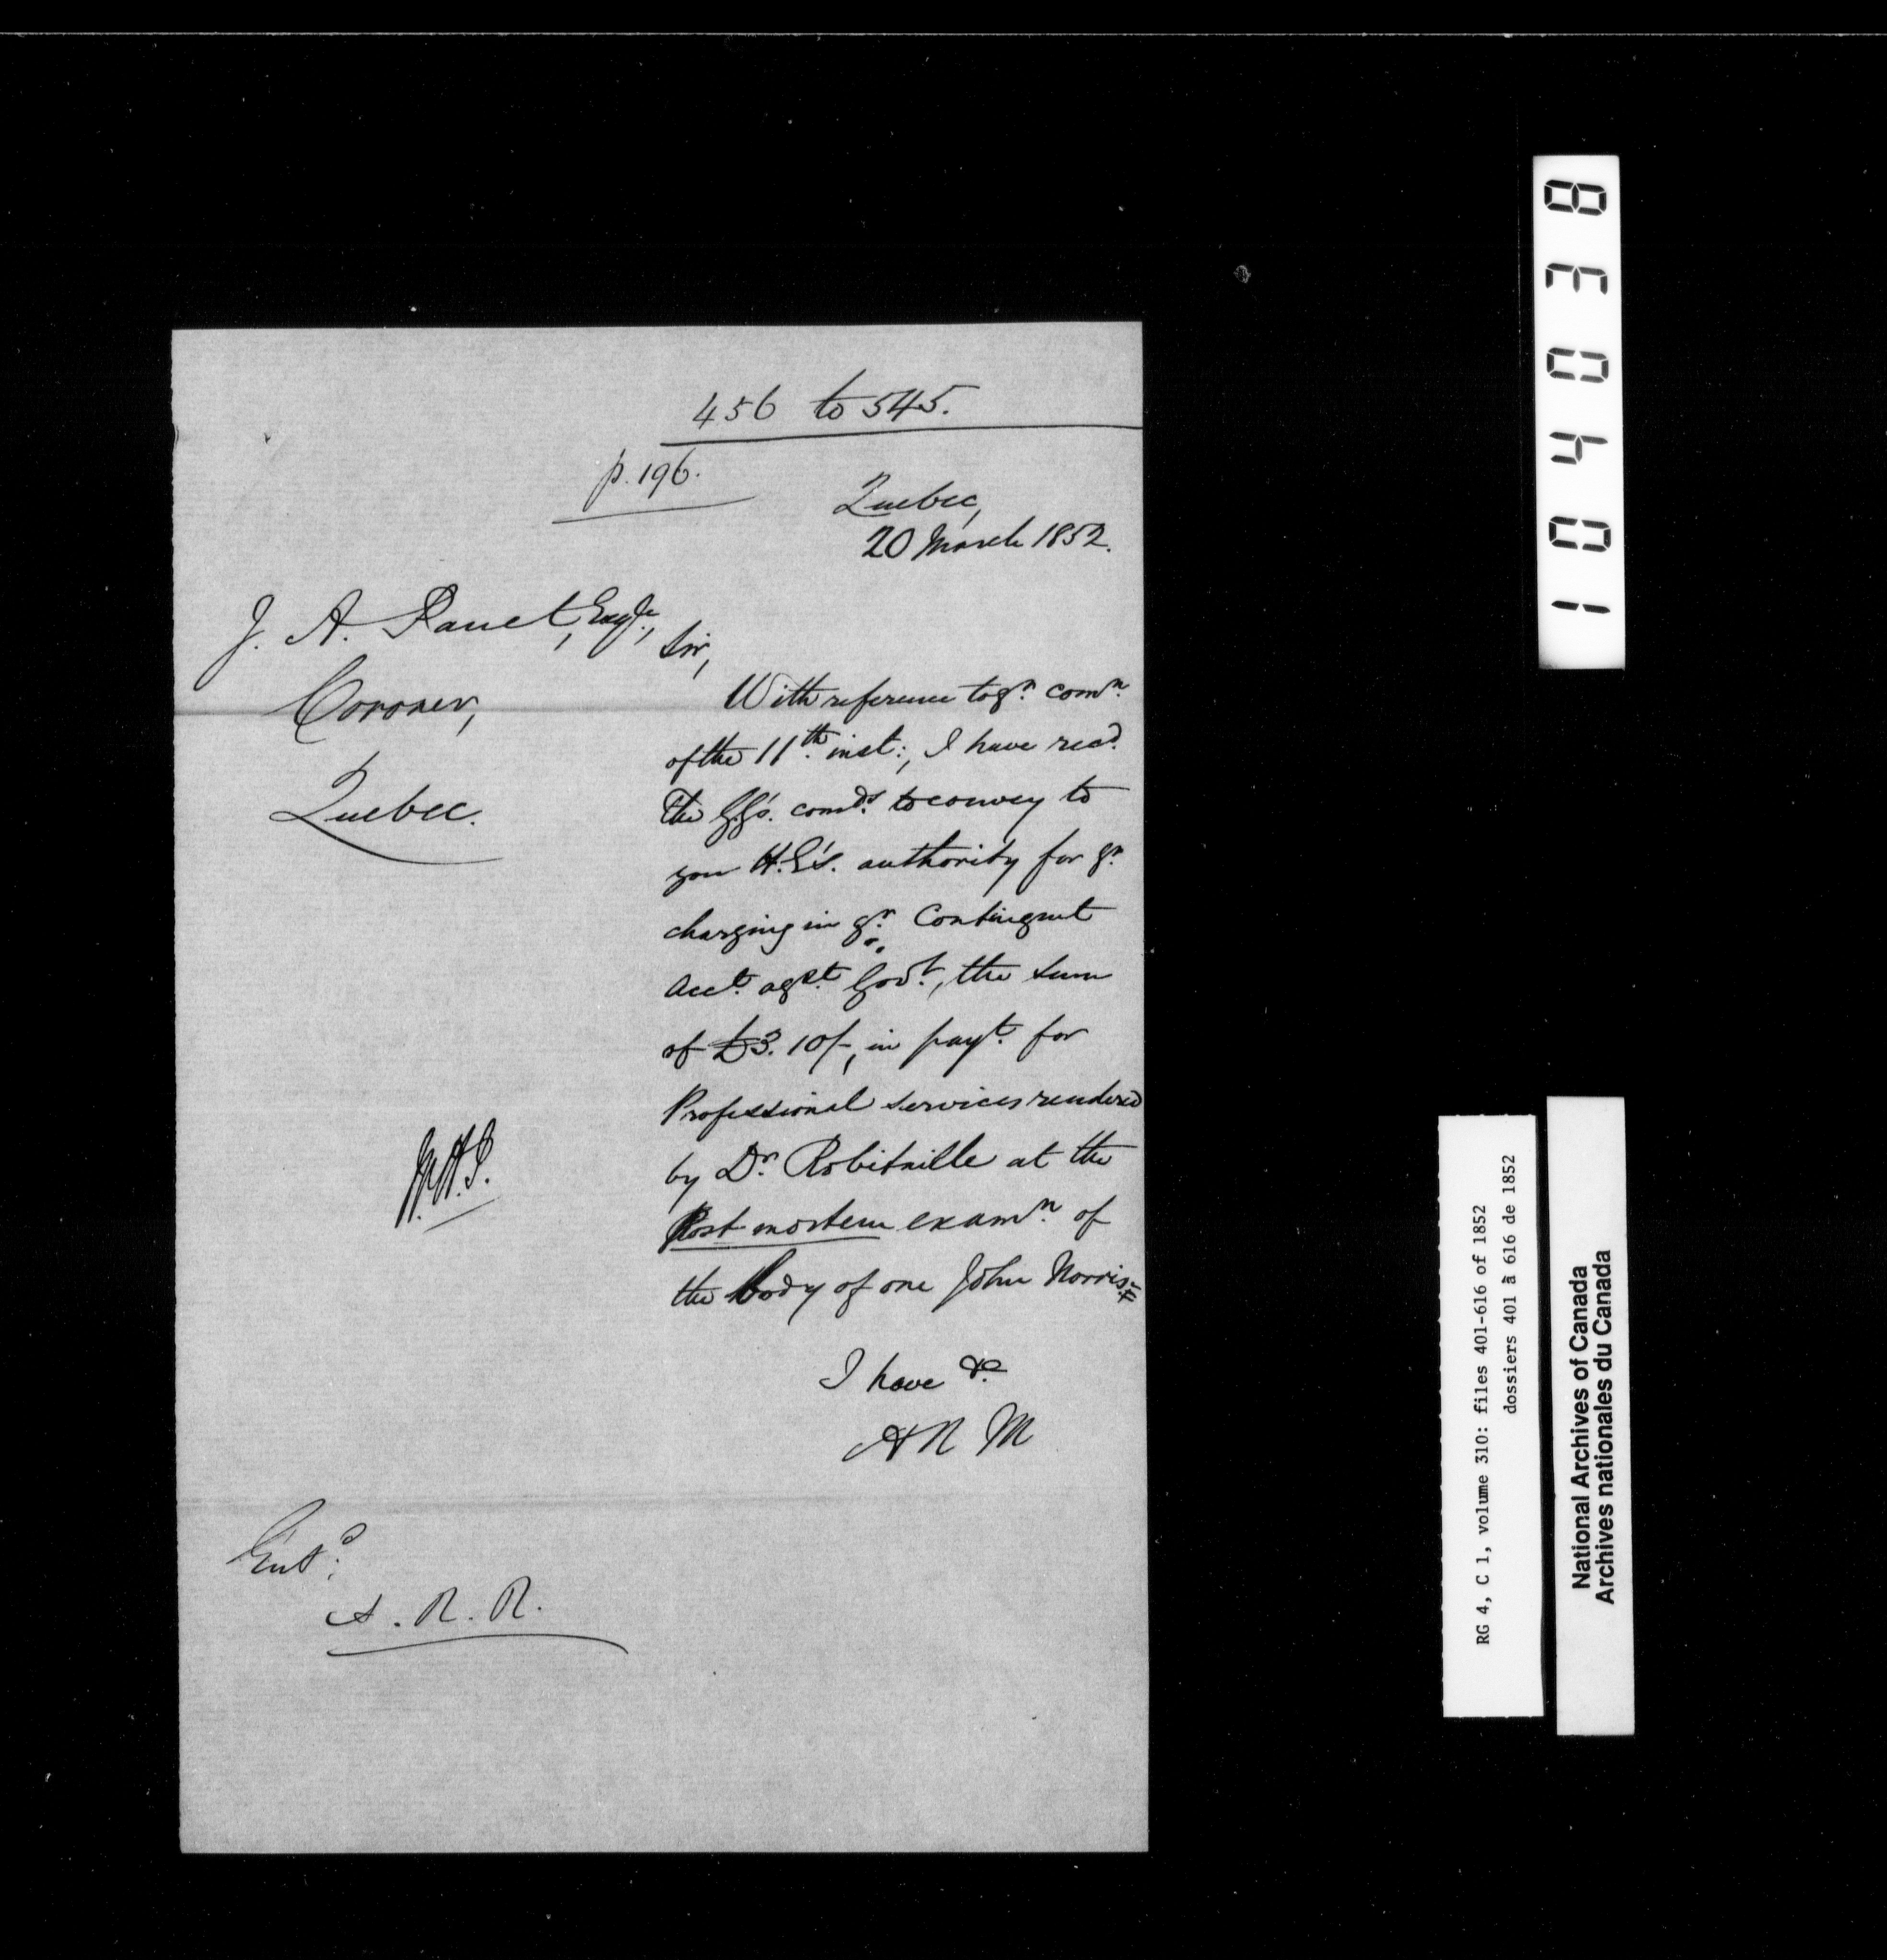 456 to 545.
p. 196.
Quebec,
20 March 1852.
J. A. Panet, Esqre.,
Coroner,
Quebec.
Sir,
With reference to yr. comn.
of the 11th. inst:, I have recd.
the G.G's. comds. to convey to
you H.E's. authority for yr.
charging in yr. Contingent
Acct. agst. Govt., the sum
of £3. 10/-, in payt. for
Professional services rendered
by Dr. Robitaille at the
Post mortem examn. of
the body of one John Norris.
I have &c
A N M
Entd.
A. R. R.
104038
RG 4, C 1, volume 310: files 401-616 of 1852
dossiers 401 à 616 de 1852
National Archives of Canada
Archives nationales du Canada